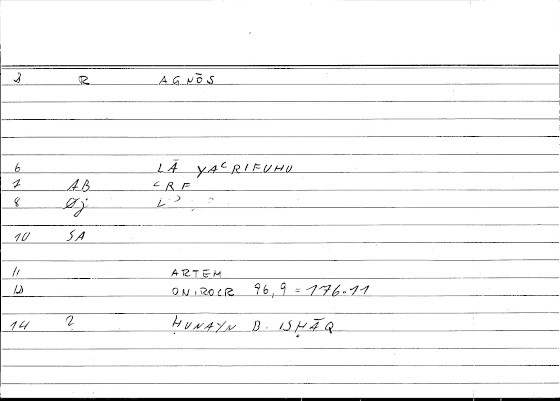 3 R AGNŌS
6 LĀ YAʿRIFUHU
7 AB ʿRF
8 Øj L
10 SA
11 ARTEM
12 ONIROCR 96,9 = 176.11
14 2 ḤUNAYN B. ISḤĀQ